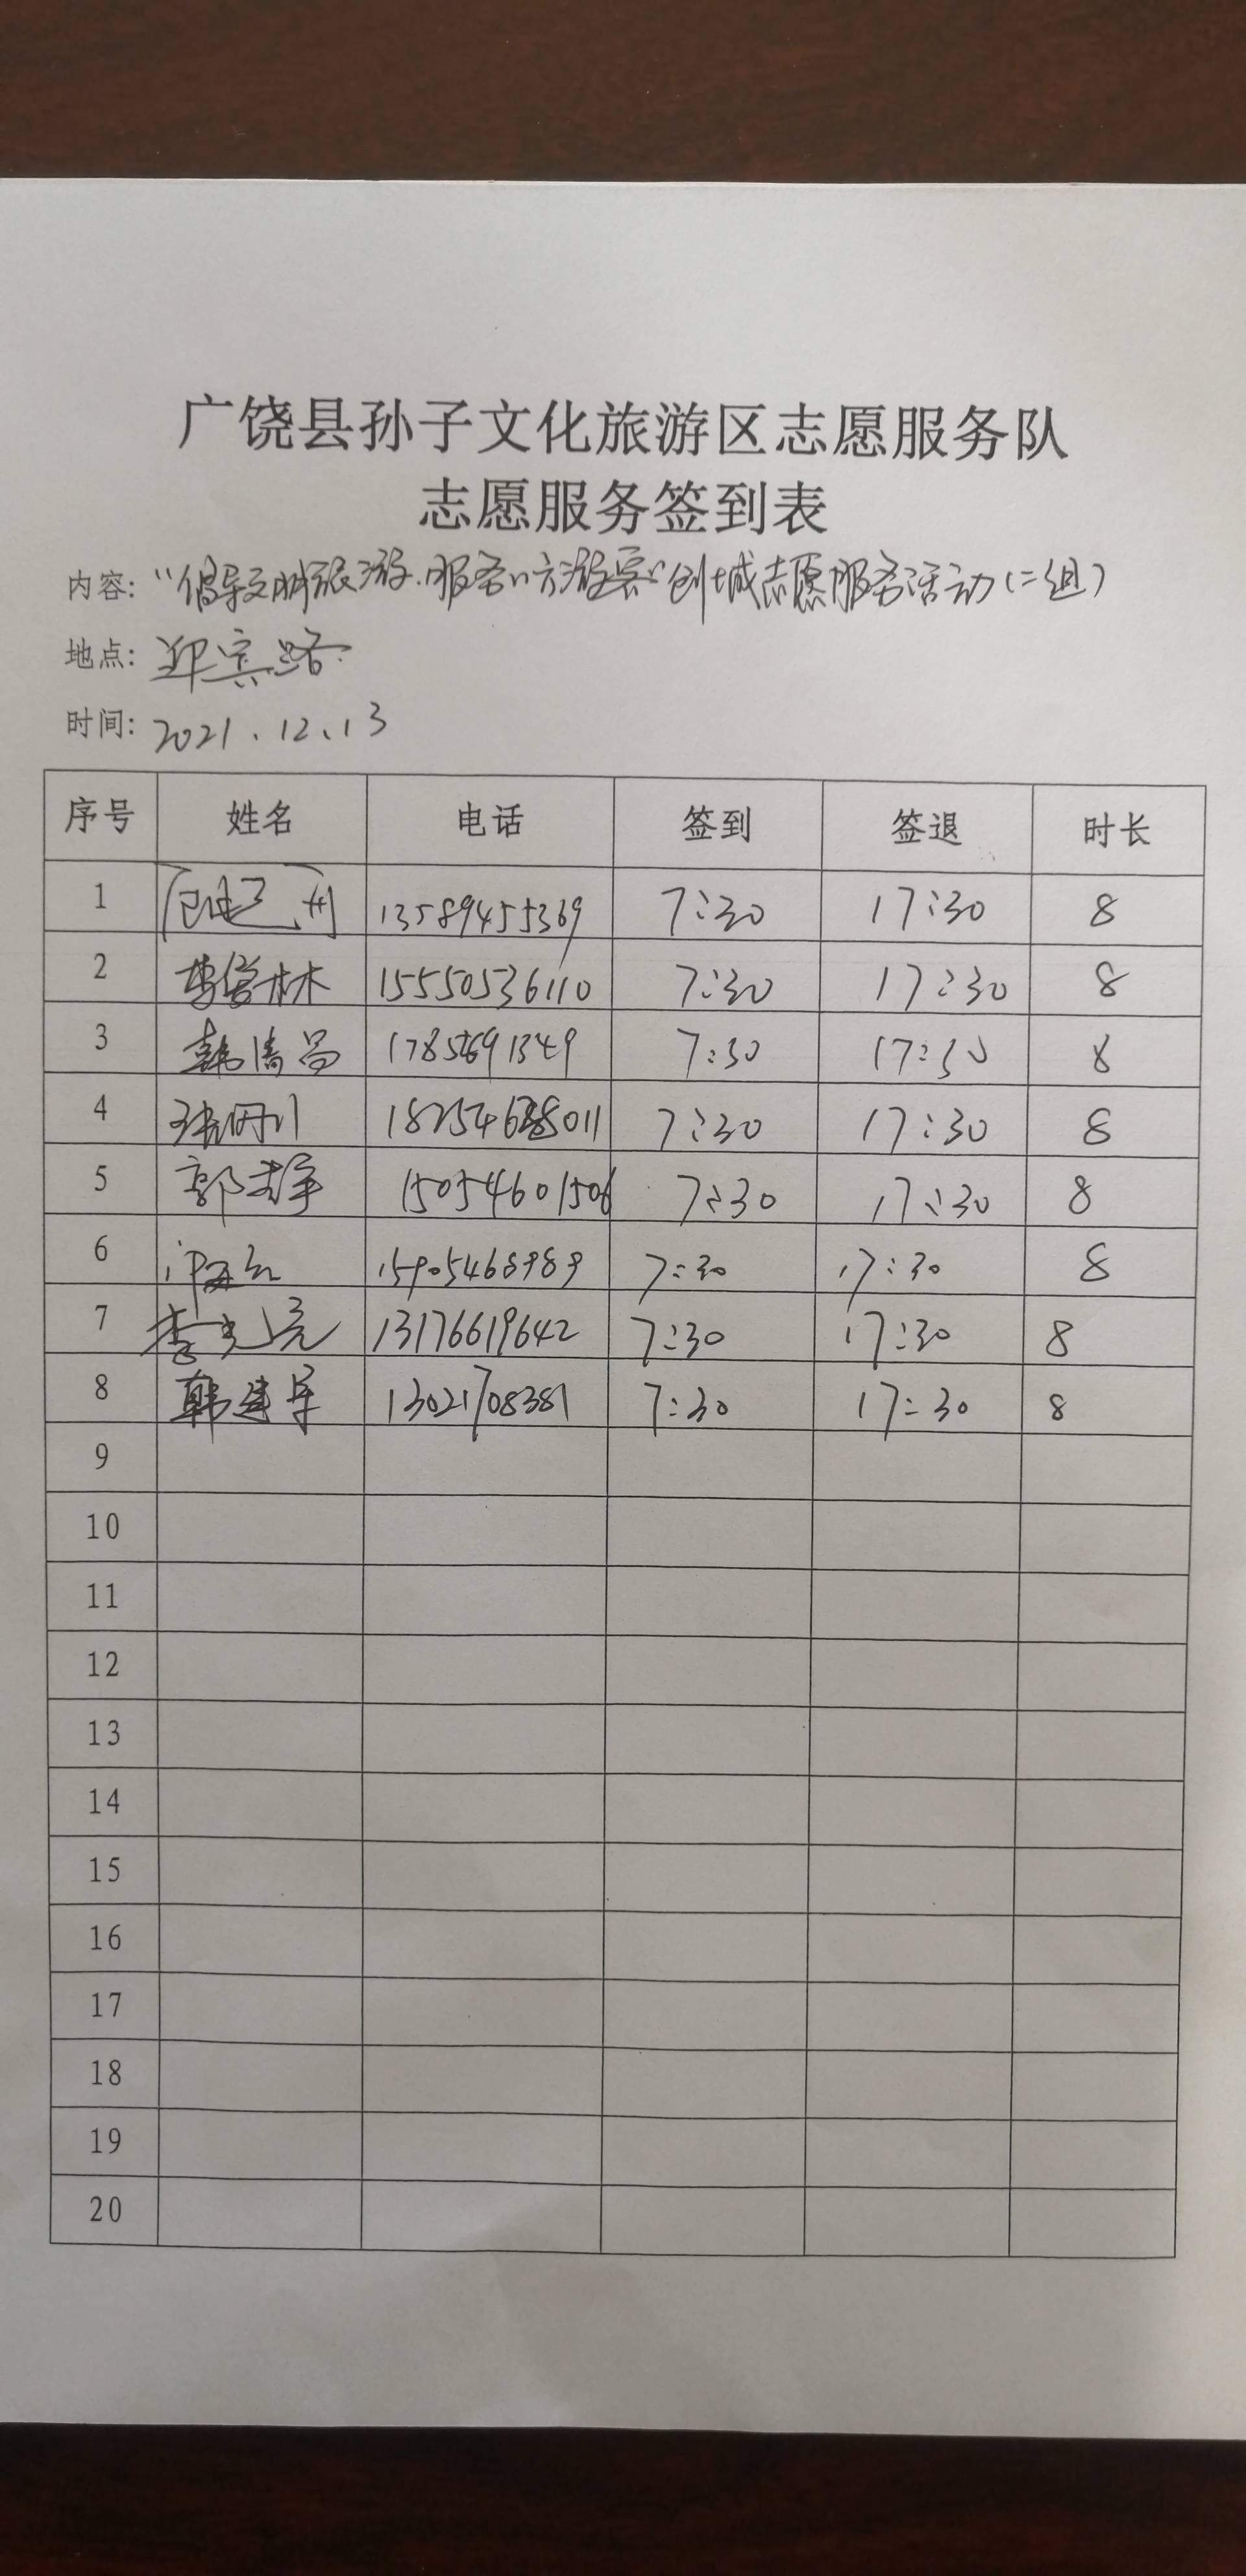 广饶县孙子文化旅游区志愿服务队
志愿服务签到表
内容: “倡导文明旅游.服务八方游客”创城志愿服务活动(二组)
地点: 迎宾路
时间: 2021.12.13
序号 姓名 电话 签到 签退 时长
1 13589455369 7:30 17:30 8
2 李学林 15550536110 7:30 17:30 8
3 韩清昌 7:30 17:30 8
4 7:30 17:30 8
5 郭志军 15054601506 7:30 17:30 8
6 15905468989 7:30 17:30 8
7 李光亮 13176619642 7:30 17:30 8
8 韩建军 13021708381 7:30 17:30 8
9
10
11
12
13
14
15
16
17
18
19
20